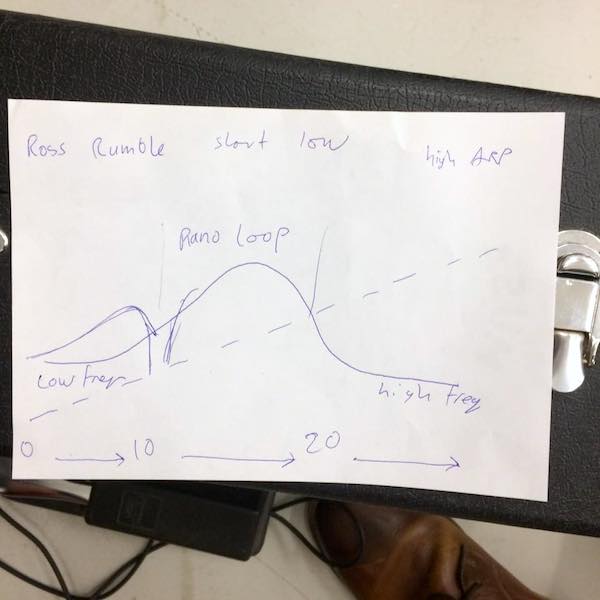 Ross Rumble start low high ARP
Piano Loop
Low Freq
high Freq
0 10 20